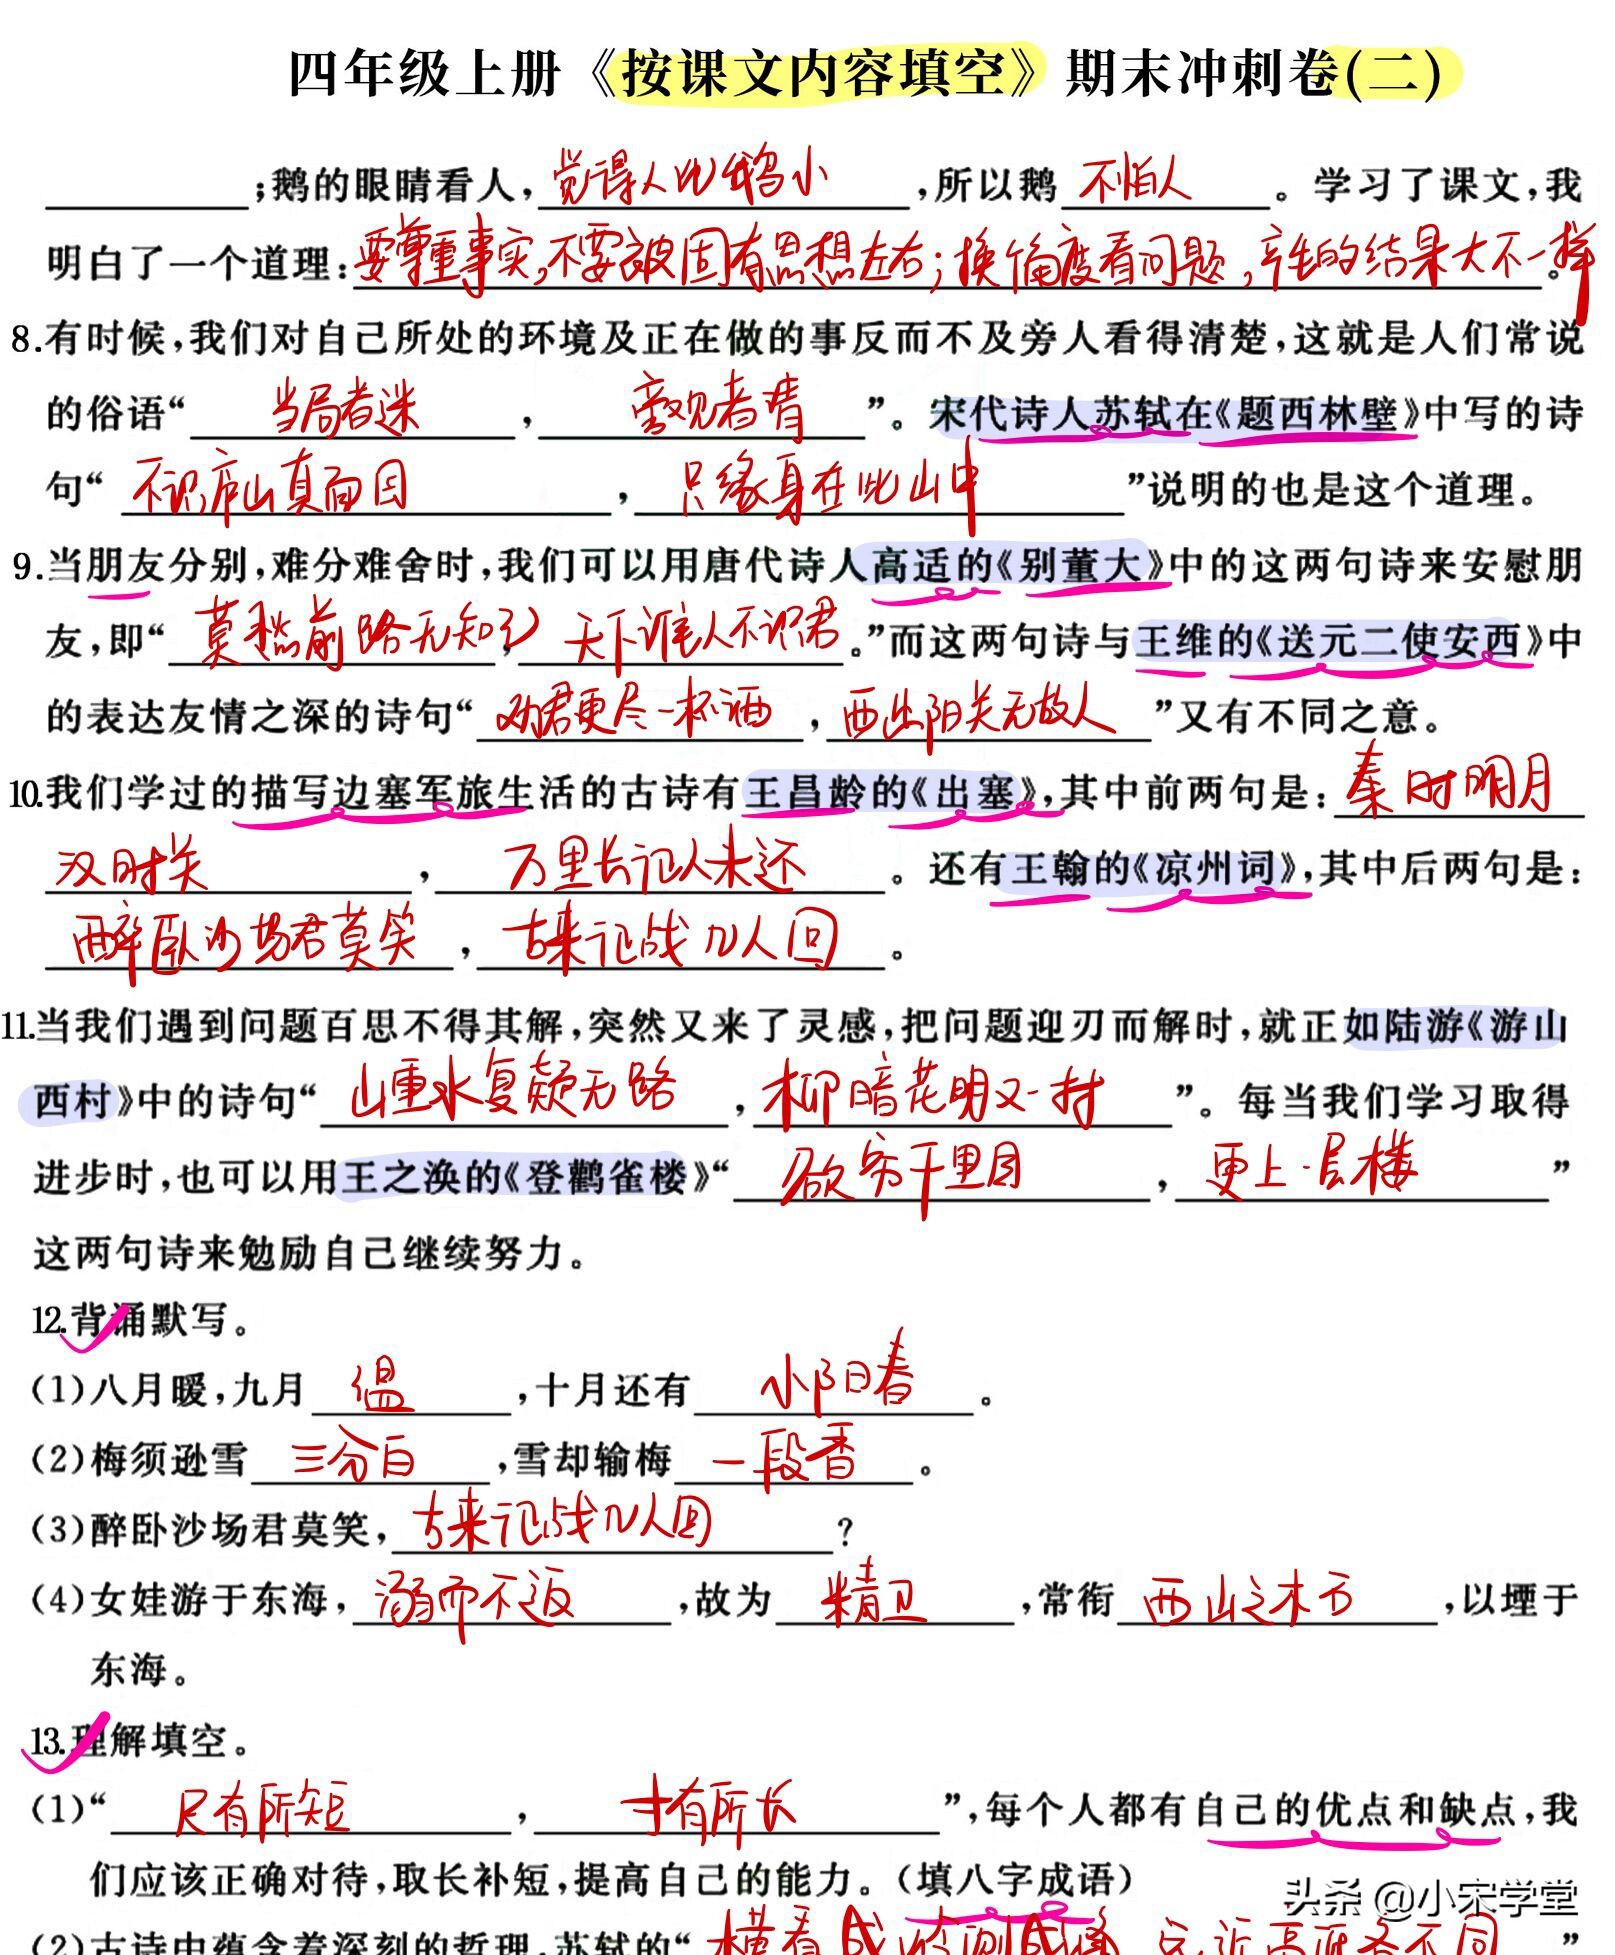 四年级上册《按课文内容填空》期末冲刺卷(二)
;鹅的眼睛看人,觉得人比鹅小,所以鹅不怕人。学习了课文,我
明白了一个道理:要尊重事实,不要被固有思想左右;换偷度看问题,产生的结果大不一样。
8.有时候,我们对自己所处的环境及正在做的事反而不及旁人看得清楚,这就是人们常说
的俗语“当局者迷,旁观者清”。宋代诗人苏轼在《题西林壁》中写的诗
句“不识庐山真面目,只缘身在此山中”说明的也是这个道理。
9.当朋友分别,难分难舍时,我们可以用唐代诗人高适的《别董大》中的这两句诗来安慰朋
友,即“莫愁前路无知己,天下谁人不识君。”而这两句诗与王维的《送元二使安西》中
的表达友情之深的诗句“劝君更尽一杯酒,西出阳关无故人”又有不同之意。
10.我们学过的描写边塞军旅生活的古诗有王昌龄的《出塞》,其中前两句是:秦时明月
汉时关,万里长征人未还。还有王翰的《凉州词》,其中后两句是:
醉卧沙场君莫笑,古来征战几人回。
11.当我们遇到问题百思不得其解,突然又来了灵感,把问题迎刃而解时,就正如陆游《游山
西村》中的诗句“山重水复疑无路,柳暗花明又一村”。每当我们学习取得
进步时,也可以用王之涣的《登鹳雀楼》“欲穷千里目,更上一层楼”
这两句诗来勉励自己继续努力。
12.背诵默写。
(1)八月暖,九月温,十月还有小阳春。
(2)梅须逊雪三分白,雪却输梅一段香。
(3)醉卧沙场君莫笑,古来征战几人回?
(4)女娃游于东海,溺而不返,故为精卫,常衔西山之木石,以堙于
东海。
13.理解填空。
(1)“尺有所短,寸有所长”,每个人都有自己的优点和缺点,我
们应该正确对待,取长补短,提高自己的能力。(填八字成语)
(2)古诗中蕴含着深刻的哲理,苏轼的“横看成岭侧成峰,远近高低各不同”
头条 @小宋学堂